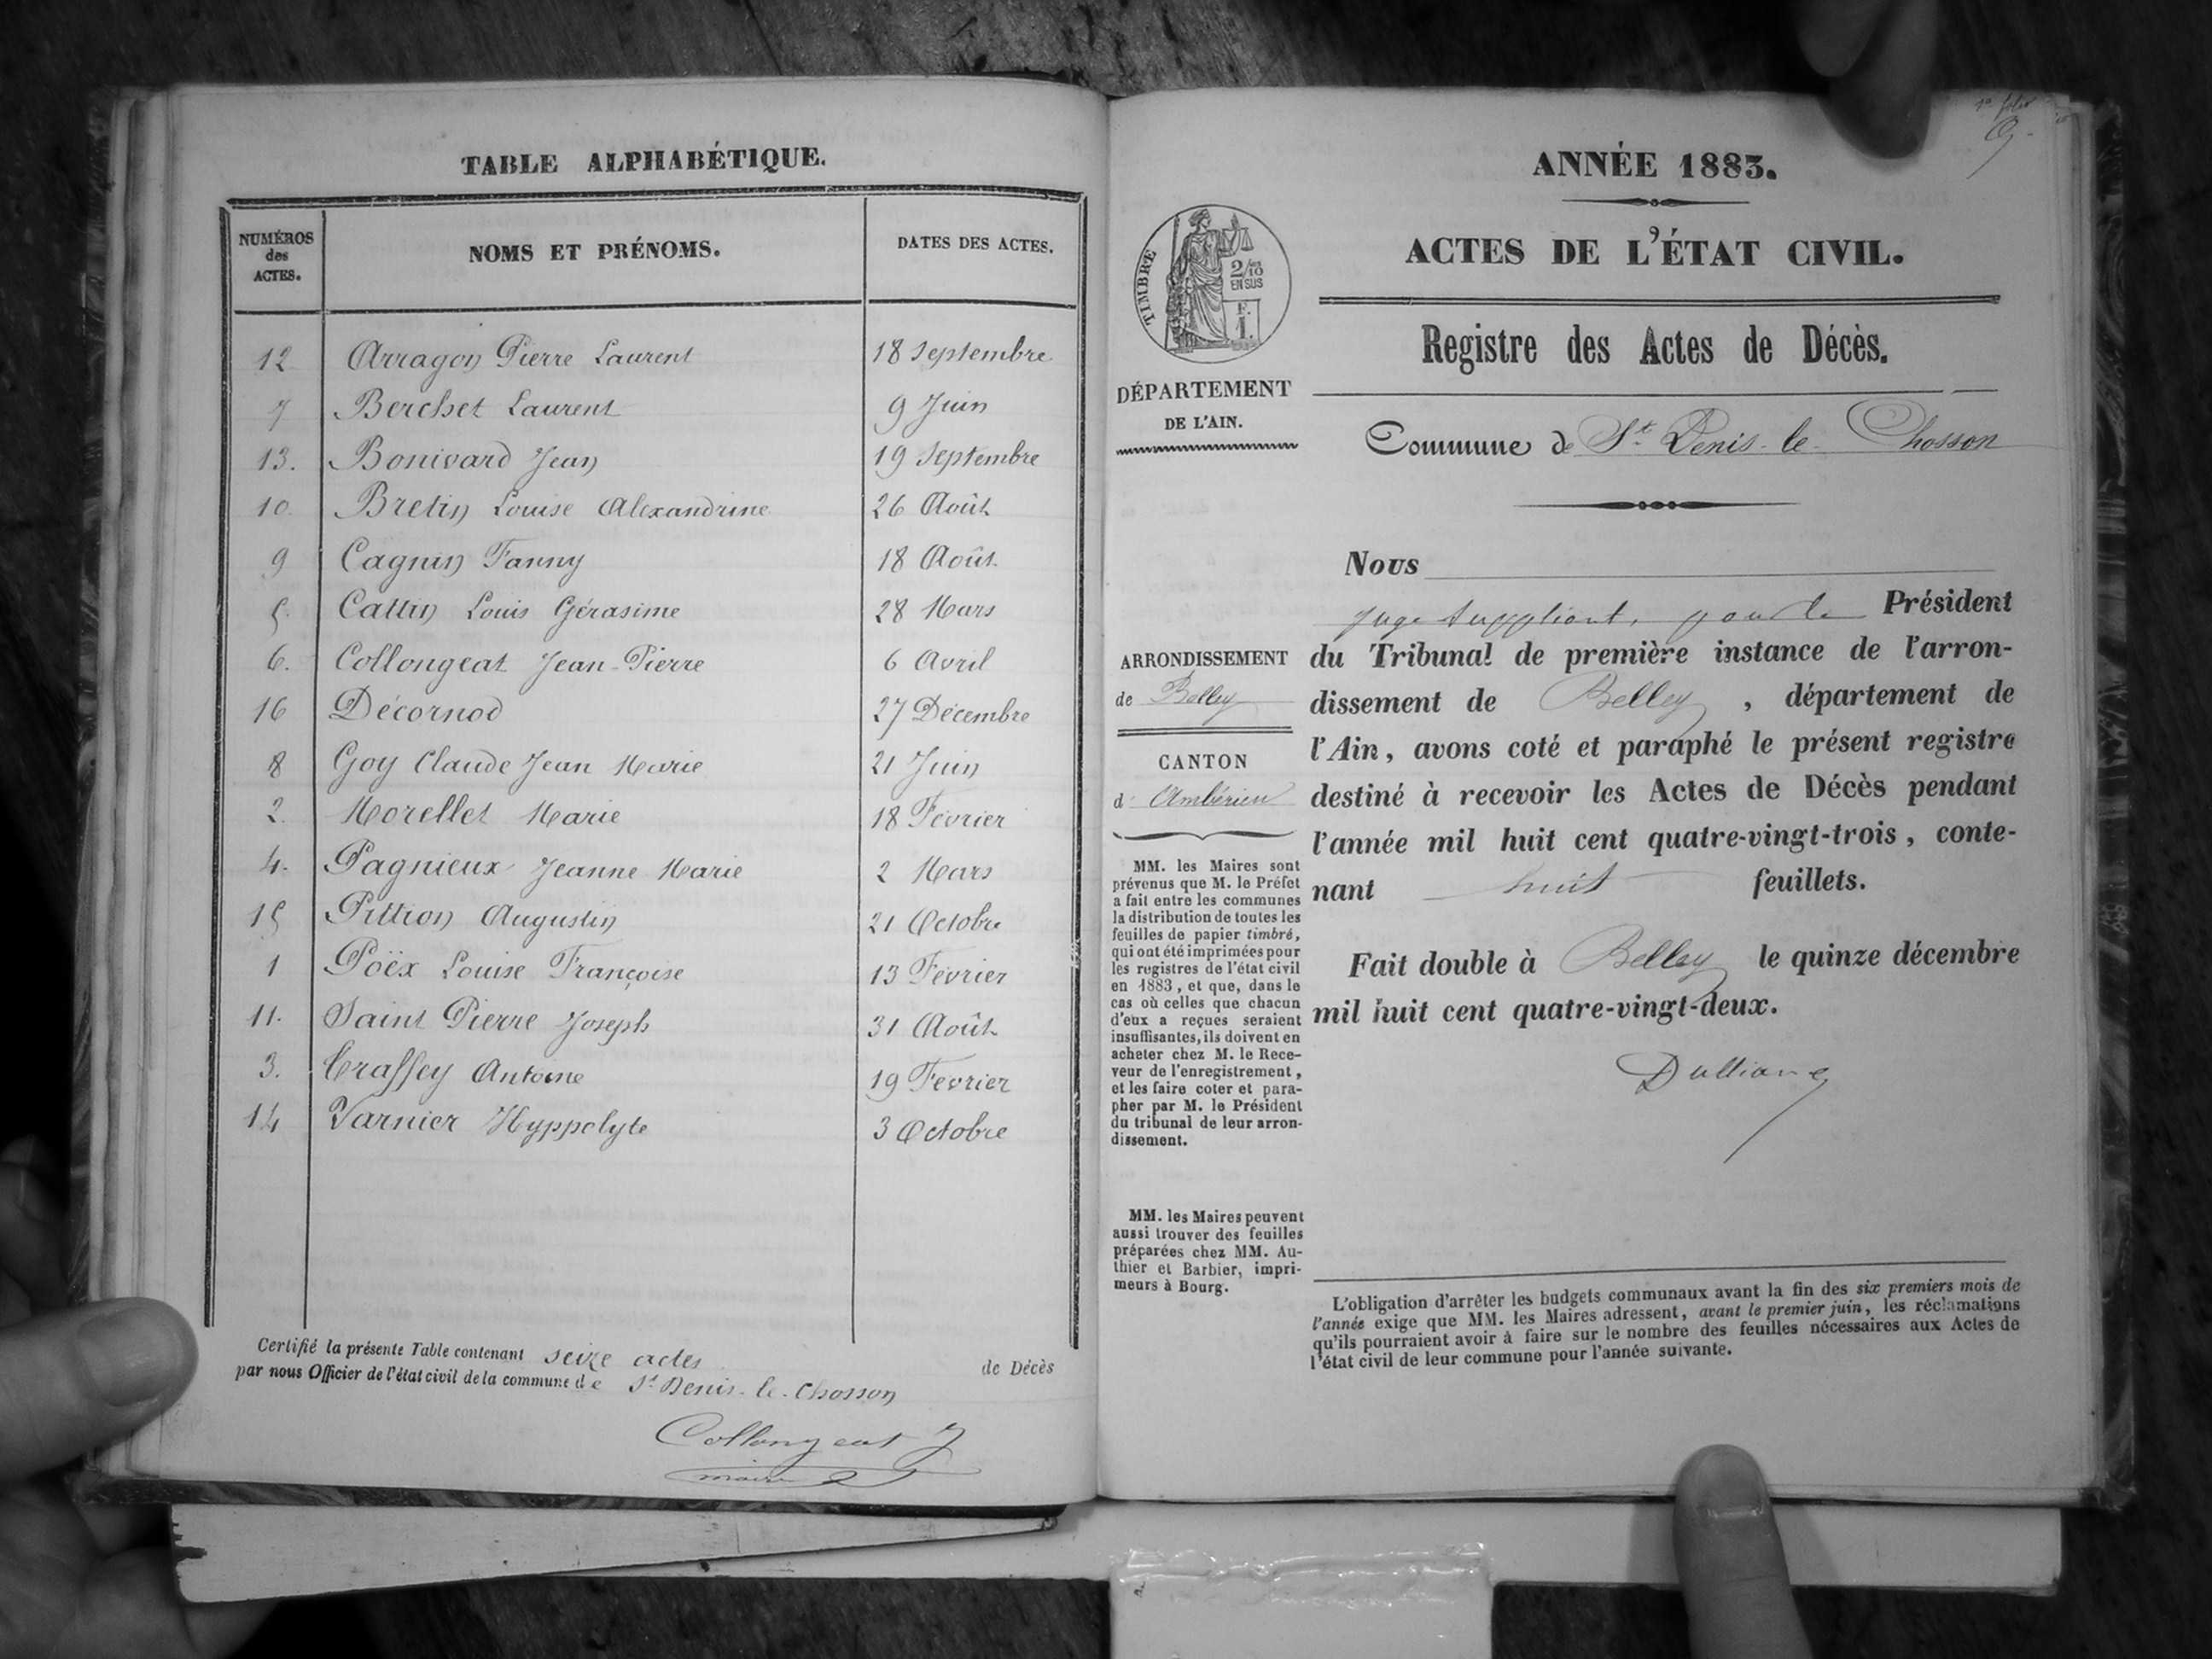 TABLE ALPHABÉTIQUE.
NUMÉROS
des
ACTES.
NOMS ET PRÉNOMS.
DATES DES ACTES.
12 Arragon Pierre Laurent 18 Septembre
7 Berchet Laurent 9 Juin
13. Bonivard Jean 19 Septembre
10 Bretin Louise Alexandrine 26 Août
9 Cagnin Fanny 18 Août
5. Cattin Louis Gérasime 28 Mars
6. Collongeat Jean-Pierre 6 Avril
16 Décornod 27 Décembre
8 Goy Claude Jean Marie 21 Juin
2. Morellet Marie 18 Février
4. Pagnieux Jeanne Marie 2 Mars
15 Pittion Augustin 21 Octobre
1 Poëx Louise Françoise 13 Février
11. Saint Pierre Joseph 31 Août
3. Antoine 19 Février
14 Varnier Hyppolyte 3 Octobre
Certifié la présente Table contenant seize actes de Décès
par nous Officier de l'état civil de la commune de St Denis-le-Chosson
Collongeat J
maire
ANNÉE 1883.
ACTES DE L'ÉTAT CIVIL.
TIMBRE
2/10
EN SUS
F.
1.
Registre des Actes de Décès.
DÉPARTEMENT
DE L'AIN.
Commune de St Denis-le-Chosson
Nous
juge suppléant, pour le Président
du Tribunal de première instance de l'arron-
dissement de Belley, département de
l'Ain, avons coté et paraphé le présent registre
destiné à recevoir les Actes de Décès pendant
l'année mil huit cent quatre-vingt-trois, conte-
nant huit feuillets.
Fait double à Belley le quinze décembre
mil huit cent quatre-vingt-deux.
ARRONDISSEMENT
de Belley
CANTON
d'Ambérieu
MM. les Maires sont
prévenus que M. le Préfet
a fait entre les communes
la distribution de toutes les
feuilles de papier timbré,
qui ont été imprimées pour
les registres de l'état civil
en 1883, et que, dans le
cas où celles que chacun
d'eux a reçues seraient
insuffisantes, ils doivent en
acheter chez M. le Rece-
veur de l'enregistrement,
et les faire coter et para-
pher par M. le Président
du tribunal de leur arron-
dissement.
MM. les Maires peuvent
aussi trouver des feuilles
préparées chez MM. Au-
thier et Barbier, impri-
meurs à Bourg.
L'obligation d'arrêter les budgets communaux avant la fin des six premiers mois de
l'année exige que MM. les Maires adressent, avant le premier juin, les réclamations
qu'ils pourraient avoir à faire sur le nombre des feuilles nécessaires aux Actes de
l'état civil de leur commune pour l'année suivante.